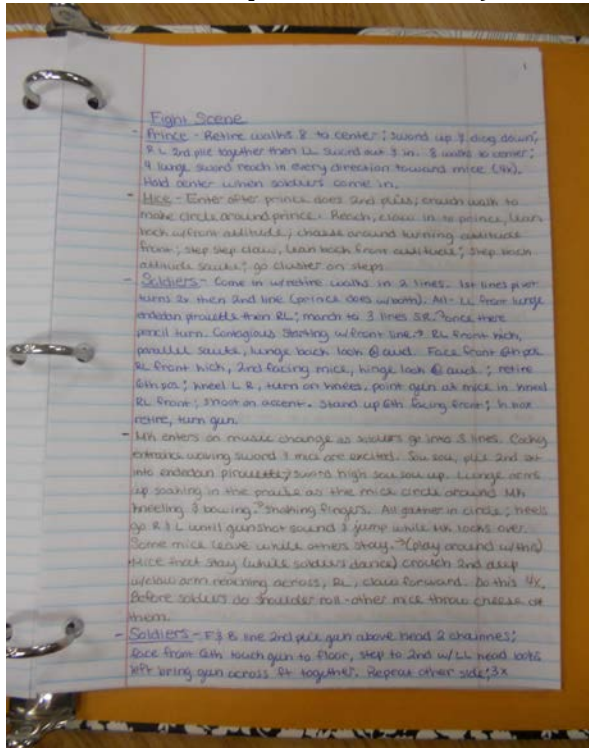 1
Fight Scene
- Prince - Retire walks 8 to center; sword up & diag down;
RL 2nd plie together then LL sword out & in. 8 walks to corner;
4 lunge sword reach in every direction toward mice (4x).
Hold center when soldiers come in.
- Mice - Enter after prince does 2nd plies; crouch walk to
make circle around prince. Reach, claw in to prince, lean
back w/front attitude; chasse around turning attitude
front; step step claw, lean back front attitude; step back
attitude saute; go cluster on steps.
- Soldiers - Come in w/retire walks in 2 lines. 1st lines pivot
turns 2x then 2nd line (prince does w/both). All - LL front lunge
endedan pirouette then RL; march to 3 lines SR. once there
pencil turn. Contagious starting w/front line → RL front kick,
parallel saute, lunge back look @ aud. Face front 6th pos.
RL front kick, 2nd facing mice, hinge look @ aud.; retire
6th pos; kneel L R, turn on knees, point gun at mice in kneel
RL front; shoot on accent. Stand up 6th facing front; h box
retire, turn gun.
- MK enters on music change as soldiers go into 3 lines. Cocky
entrance waving sword & mice are excited. Sou sou, plie 2nd
into endedan pirouette; sword high sou sou up. Lunge arms
up soaking in the praise as the mice circle around MK
kneeling & bowing. shaking fingers. All gather in circle; heels
go R & L until gunshot sound & jump while MK looks over.
Some mice leave while others stay. → (play around w/this)
- Mice that stay (while soldiers dance) crouch 2nd deep
w/claw arm reaching across, RL, claw forward. Do this 4x.
Before soldiers do shoulder roll - other mice throw cheese at
them.
- Soldiers - F & B line 2nd plie gun above head 2 chaines;
face front 6th touch gun to floor, step to 2nd w/LL head looks
left bring gun across ft together. Repeat other side; 3x